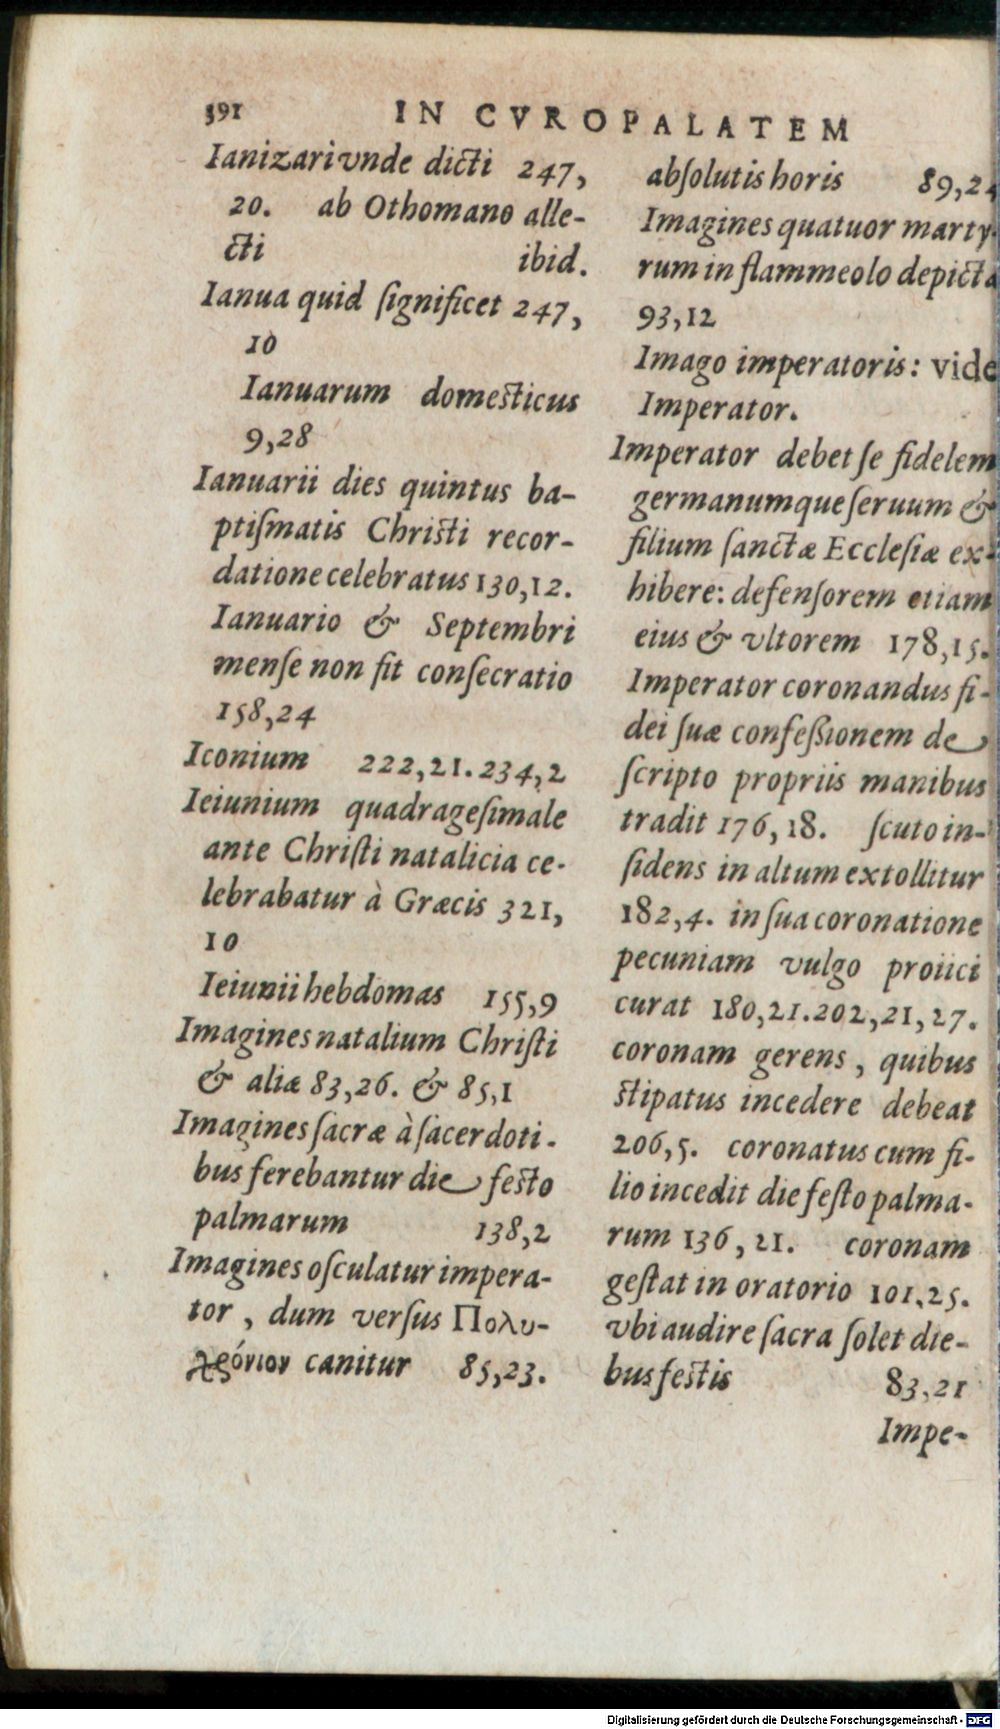 391 IN CVROPALATEM
Ianizari vnde dicti 247,
20. ab Othomano alle-
cti ibid.
Ianua quid ſignificet 247,
10
Ianuarum domeſticus
9,28
Ianuarii dies quintus ba-
ptiſmatis Chriſti recor-
datione celebratus 130,12.
Ianuario & Septembri
menſe non fit conſecratio
158,24
Iconium 222,21.234,2
Ieiunium quadrageſimale
ante Chriſti natalicia ce-
lebrabatur à Græcis 321,
10
Ieiunii hebdomas 155,9
Imagines natalium Chriſti
& aliæ 83,26. & 85,1
Imagines ſacræ à ſacerdoti-
bus ferebantur die feſto
palmarum 138,2
Imagines oſculatur impera-
tor, dum verſus Πολυ-
χρόνιον canitur 85,23.
abſolutis horis 89,24
Imagines quatuor marty-
rum in flammeolo depicta
93,12
Imago imperatoris: vide
Imperator.
Imperator debet ſe fidelem
germanumque ſeruum &
filium ſanctæ Eccleſiæ ex-
hibere: defenſorem etiam
eius & vltorem 178,15.
Imperator coronandus fi-
dei ſuæ confeßionem de
ſcripto propriis manibus
tradit 176,18. ſcuto in-
ſidens in altum extollitur
182,4. in ſua coronatione
pecuniam vulgo proiici
curat 180,21.202,21,27.
coronam gerens, quibus
ſtipatus incedere debeat
206,5. coronatus cum fi-
lio incedit die feſto palma-
rum 136,21. coronam
geſtat in oratorio 101,25.
vbi audire ſacra ſolet die-
bus feſtis 83,21
Impe-
Digitalisierung gefördert durch die Deutsche Forschungsgemeinschaft - DFG